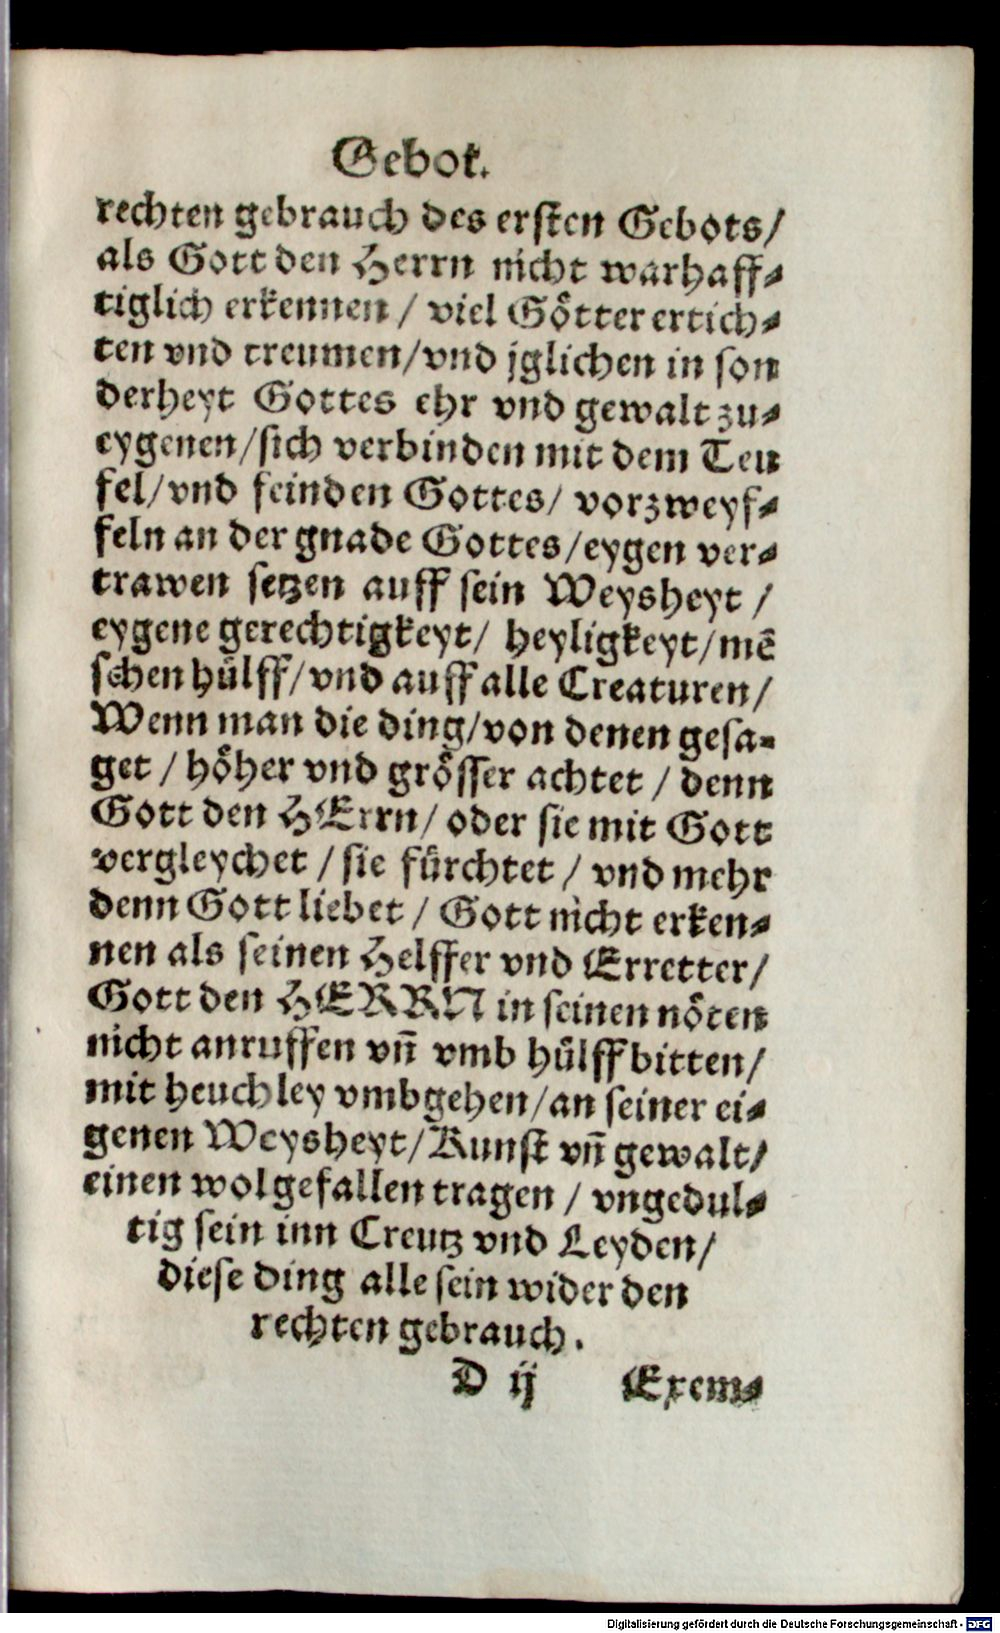 Gebot.
rechten gebrauch des ersten Gebots/
als Gott den Herrn nicht warhaff⸗
tiglich erkennen / viel Götter ertich⸗
ten vnd treumen/vnd jglichen in son
derheyt Gottes ehr vnd gewalt zu⸗
eygenen/sich verbinden mit dem Teu
fel/vnd feinden Gottes/ vorzweyf⸗
feln an der gnade Gottes/eygen ver⸗
trawen setzen auff sein Weysheyt /
eygene gerechtigkeyt/ heyligkeyt/mē
schen hülff/vnd auff alle Creaturen/
Wenn man die ding/von denen gesa⸗
get / höher vnd grösser achtet / denn
Gott den HErrn/ oder sie mit Gott
vergleychet / sie fürchtet / vnd mehr
denn Gott liebet / Gott nicht erken⸗
nen als seinen Helffer vnd Erretter/
Gott den HERRN in seinen nöten
nicht anruffen vñ vmb hülff bitten/
mit heuchley vmbgehen/an seiner ei⸗
genen Weysheyt/Kunst vñ gewalt/
einen wolgefallen tragen / vngedul⸗
tig sein inn Creutz vnd Leyden/
diese ding alle sein wider den
rechten gebrauch.
D ij Exem⸗
Digitalisierung gefördert durch die Deutsche Forschungsgemeinschaft - DFG